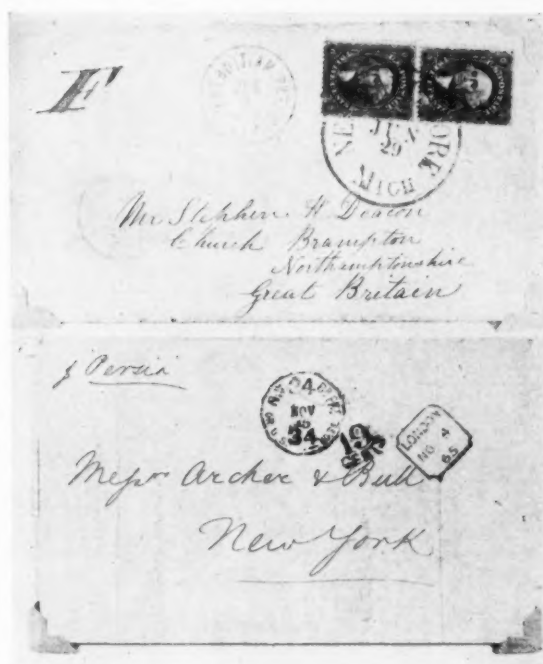 F
NEW YORK
JUN
29
MICH
Mr Stephen H Deacon
Church Brampton
Northamptonshire
Great Britain
p Persia
24
NOV
34
19
CENTS
LONDON
NO 4
65
Messrs Archer & Bull
New York